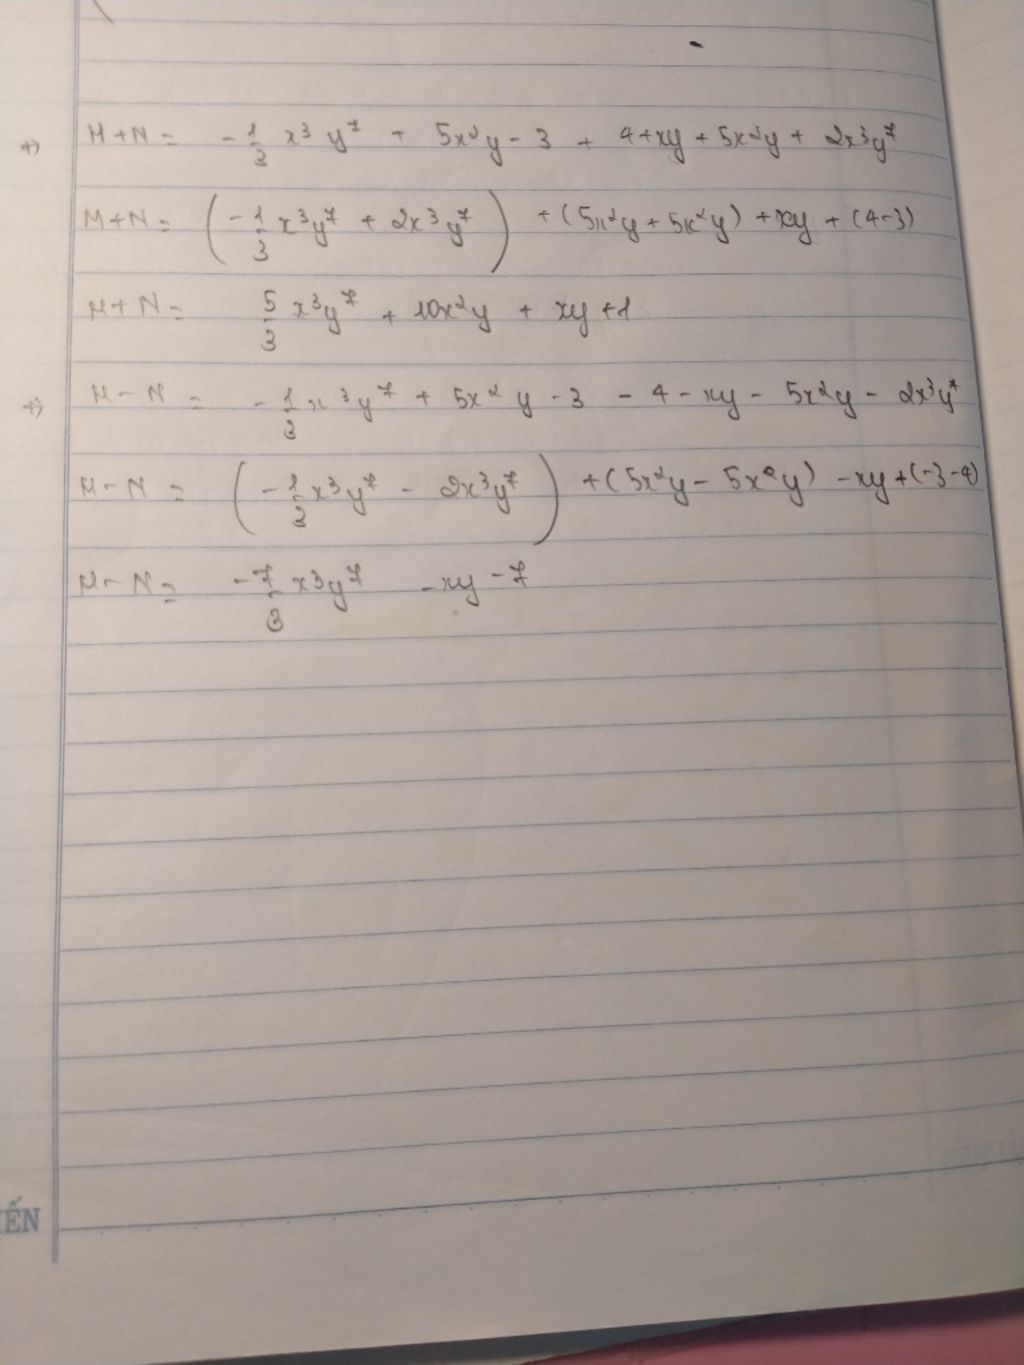 +) M+N = -1/3 x³y⁷ + 5x²y - 3 + 4+xy+5x²y + 2x³y⁷
M+N = (-1/3 x³y⁷ + 2x³y⁷) + (5x²y + 5x²y) + xy + (4-3)
M+N = 5/3 x³y⁷ + 10x²y + xy +1
+) M-N = -1/3 x³y⁷ + 5x²y - 3 - 4 - xy - 5x²y - 2x³y⁷
M-N = (-1/3 x³y⁷ - 2x³y⁷) + (5x²y - 5x²y) - xy + (-3-4)
M-N = -7/3 x³y⁷ - xy - 7
ẾN